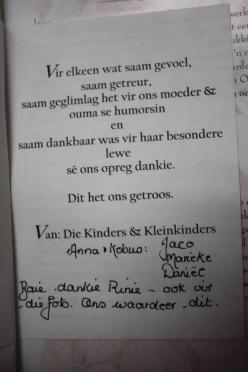 Vir elkeen wat saam gevoel,
saam getreur,
saam geglimlag het vir ons moeder &
ouma se humorsin
en
saam dankbaar was vir haar besondere
lewe
sê ons opreg dankie.
Dit het ons getroos.
Van: Die Kinders & Kleinkinders
Anna & Kobus: Jaco
Marieke
Daniël
Baie dankie Rinie - ook vir
die foto. Ons waardeer dit.